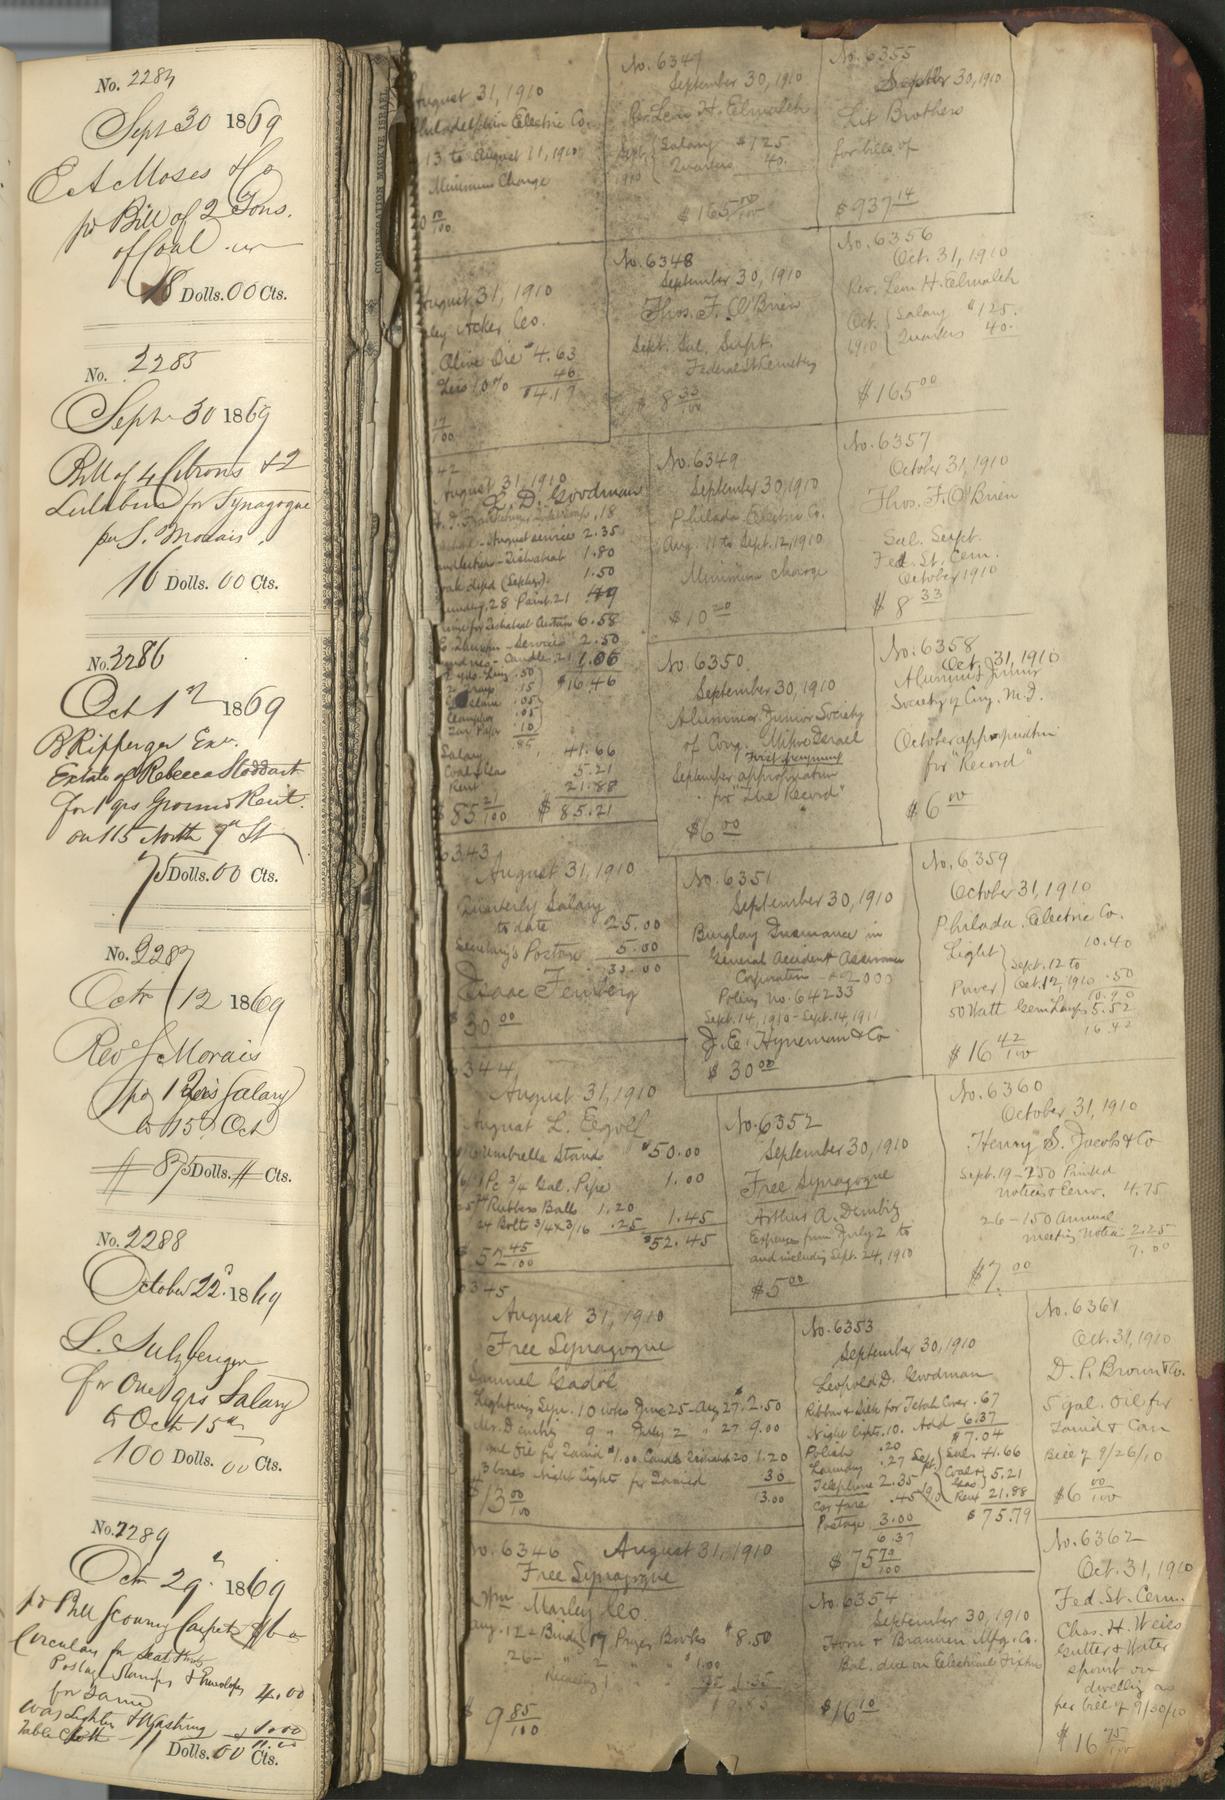 No. 2284
Sept 30 1869
E A Moses & Co
for Bill of 2 Tons.
of Coal
18 Dolls. 00 Cts.
No. 2285
Sept 30 1869
Bill of 4 Citrons & 2
Lulabim for Synagogue
per S. Morais
16 Dolls. 00 Cts.
No. 2286
Oct 1st 1869
B Ripperger Exr.
Estate of Rebecca Stoddart
for 1 qrs Ground Rent.
on 115 North 7th St
75 Dolls. 00 Cts.
No. 2287
Octr 12 1869
Revd S Morais
for 1 Salary
to 15th Oct
# 875 Dolls. # Cts.
No. 2288
October 22d 1869
L. Sulzberger
for One qrs Salary
to Oct 15th
100 Dolls. 00 Cts.
No. 2289
Octr 29th 1869
for Bill Scouring Carpets $6
Circulars for Seat
Postage Stamps & Envelopes 4.00
for Same
Wax Lighter & Washing 1.00
Table Cloth 11.00
11 Dolls. 00 Cts.
CONGREGATION MIKVE ISRAEL
August 31, 1910
Philadelphia Electric Co.
13 to August 11, 1910
Minimum Charge
August 31, 1910
Acker Co.
Olive Oil $4.63
Less 10% 46
$4.17
42
August 31, 1910
L. D. Goodman
.18
August service 2.35
1.80
(Sephyr). 1.50
28 Paint. 21 49
6.58
Services 2.50
Candles 21 1.06
.50 $16.46
.15
.05
.05
Tar Paper 10
85
Salary 41.66
Coal & Gas 5.21
Rent 21.88
$85 21/100 $85.21
6343
August 31, 1910
Quarterly Salary
to date 25.00
Secretary's Postage 5.00
30.00
Isaac Feinberg
$30 00
6344
August 31, 1910
August L.
Umbrella Stand $50.00
1 Pc 3/4 Gal. Pipe 1.00
Rubber Balls 1.20
24 Bolts 3/4 x 3/16 .25 1.45
$52.45
$52 45/100
6345
August 31, 1910
Free Synagogue
Samuel Gadol
Lighting Syn. 10 wks June 25 - Aug 27 $2.50
Mr. Dembitz 9 " July 2 " 27 9.00
gal Oil for Tamid $1.00 Candles 20 1.20
3 boxes Night Lights for Tamid 30
13.00
$13 00/100
No. 6346 August 31, 1910
Free Synagogue
Wm Marley Co.
Aug. 12 - Bindg 17 Prayer Books $8.50
26 - " 2 " " $1.00
1.35
$9 85/100
No. 6347
September 30, 1910
Rev. Leon H. Elmaleh
Sept. 1910 Salary $125
Quarters 40.
$165 00/100
No. 6348
September 30, 1910
Thos. F. O'Brien
Sept. Sal. Supt.
Federal St Cemetery
$8 33/100
No. 6349
September 30, 1910
Philada Electric Co.
Aug. 11 to Sept. 12, 1910
Minimum charge
$10 20
No. 6350
September 30, 1910
Alumni & Junior Society
of Cong. Mikve Israel
First payment
September appropriation
for "The Record"
$6 00
No. 6351
September 30, 1910
Burglary Insurance in
General Accident Assurance
Corporation - $2000
Policy No. 64233
Sept. 14, 1910 - Sept. 14, 1911
J. E. Hyneman & Co
$30 00
No. 6352
September 30, 1910
Free Synagogue
Arthur A. Dembitz
Expenses from July 2 to
and including Sept. 24, 1910
$5 00
No. 6353
September 30, 1910
Leopold D. Goodman
Ribbon & Silk for Tebah Cover .67
Night lights .10. Add 6.37
$7.04
Polish .20
Laundry .27
Telephone 2.35
Car fare .45
Postage 3.00
6.37
Sept. 1910 Sal. 41.66
Coal & Gas 5.21
Rent 21.88
$75.79
$75 79/100
No. 6354
September 30, 1910
Horn & Brannen Mfg. Co.
Bal. due on Electrical Fixture
$16 10
No. 6355
Septbr 30, 1910
Lit Brothers
for bills of
$937 14
No. 6356
Oct. 31, 1910
Rev. Leon H. Elmaleh
Oct. 1910 Salary $125.
Quarters 40.
$165 00
No. 6357
October 31, 1910
Thos. F. O'Brien
Sal. Supt.
Fed. St. Cem.
October 1910
$8 33
No. 6358
Oct. 31, 1910
Alumni & Junior
Society of Cong. M. I.
October appropriation
for "Record"
$6 00
No. 6359
October 31, 1910
Philada. Electric Co.
Light 10.40
Sept. 12 to
Power Oct. 12, 1910 .50
10.90
50 Watt Gem Lamps 5.52
16.42
$16 42/100
No. 6360
October 31, 1910
Henry S. Jacobs & Co
Sept. 19 - 250 Printed
notices & Env. 4.75
26 - 150 Annual
meeting Notices 2.25
7.00
$7 00
No. 6361
Oct. 31, 1910
D. P. Brown & Co.
5 gal. Oil for
Tamid & Can
Bill of 9/26/10
$6 00/100
No. 6362
Oct. 31, 1910
Fed. St. Cem.
Chas. H. Weiss
Gutter & Water
spout on
dwelling as
per bill of 9/30/10
$16 75/100